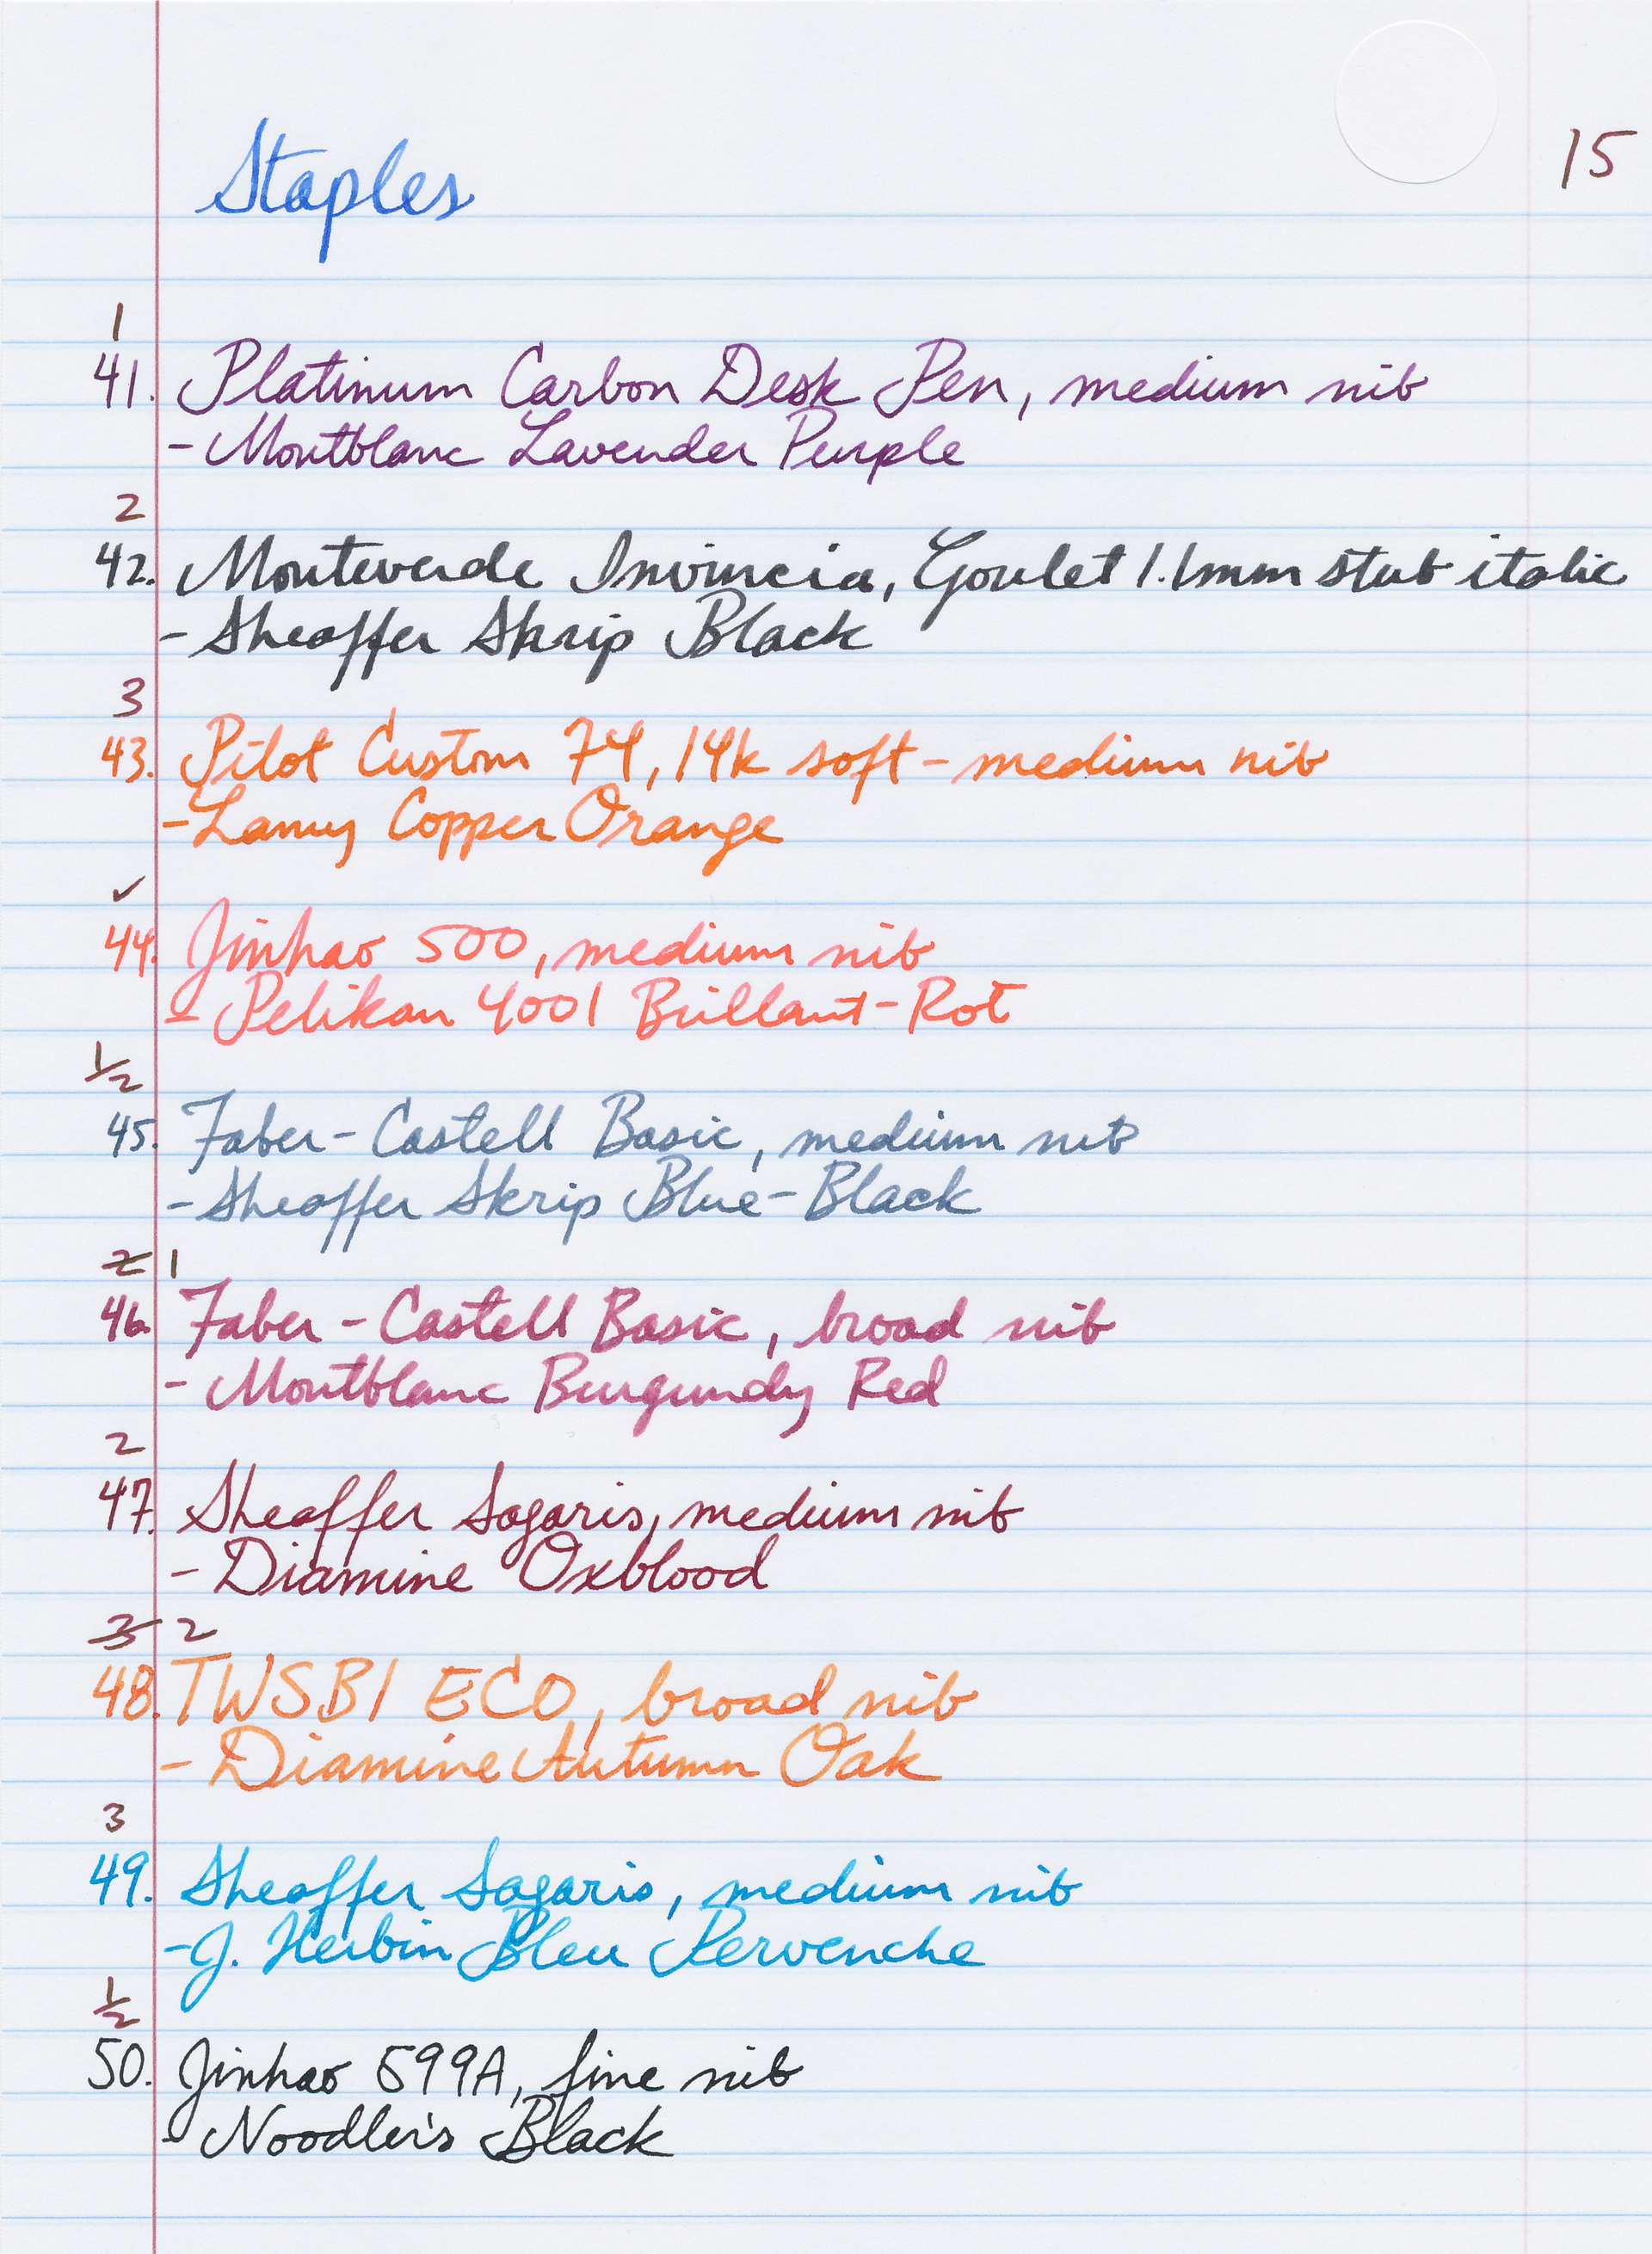 15
Staples
1
41. Platinum Carbon Desk Pen, medium nib
- Montblanc Lavender Purple
2
42. Monteverde Invincia, Goulet 1.1mm stub italic
- Sheaffer Skrip Black
3
43. Pilot Custom 74, 14k soft-medium nib
- Lamy Copper Orange
✓
44. Jinhao 500, medium nib
- Pelikan 4001 Brillant-Rot
1/2
45. Faber-Castell Basic, medium nib
- Sheaffer Skrip Blue-Black
2 1
46. Faber-Castell Basic, broad nib
- Montblanc Burgundy Red
2
47. Sheaffer Sagaris, medium nib
- Diamine Oxblood
3 2
48. TWSBI ECO, broad nib
- Diamine Autumn Oak
3
49. Sheaffer Sagaris, medium nib
- J. Herbin Bleu Pervenche
1/2
50. Jinhao 599A, fine nib
- Noodler's Black